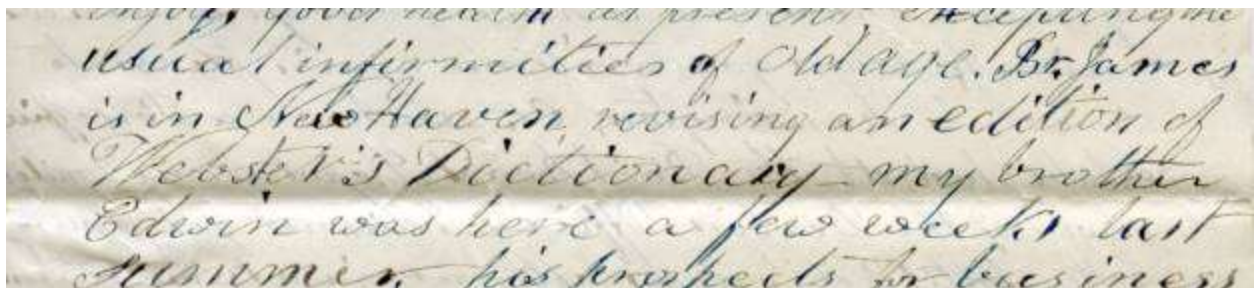 enjoys good health at present excepting the
usual infirmities of Old age. Br. James
is in New Haven revising an edition of
Webster's Dictionary my brother
Edwin was here a few weeks last
summer, his prospects for business